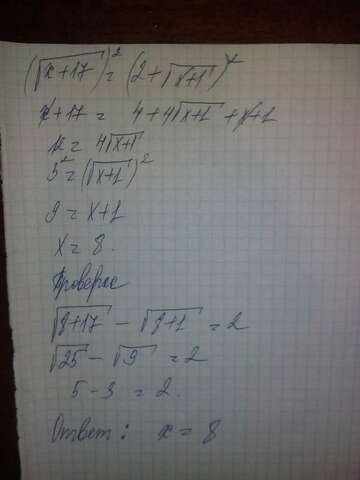 (√x+17)² = (2+√x+1)²
x+17 = 4+4√x+1 +x+1
12 = 4√x+1
3² = (√x+1)²
9 = x+1
x = 8.
Проверка
√8+17 - √8+1 = 2
√25 - √9 = 2
5 - 3 = 2.
Ответ: x = 8